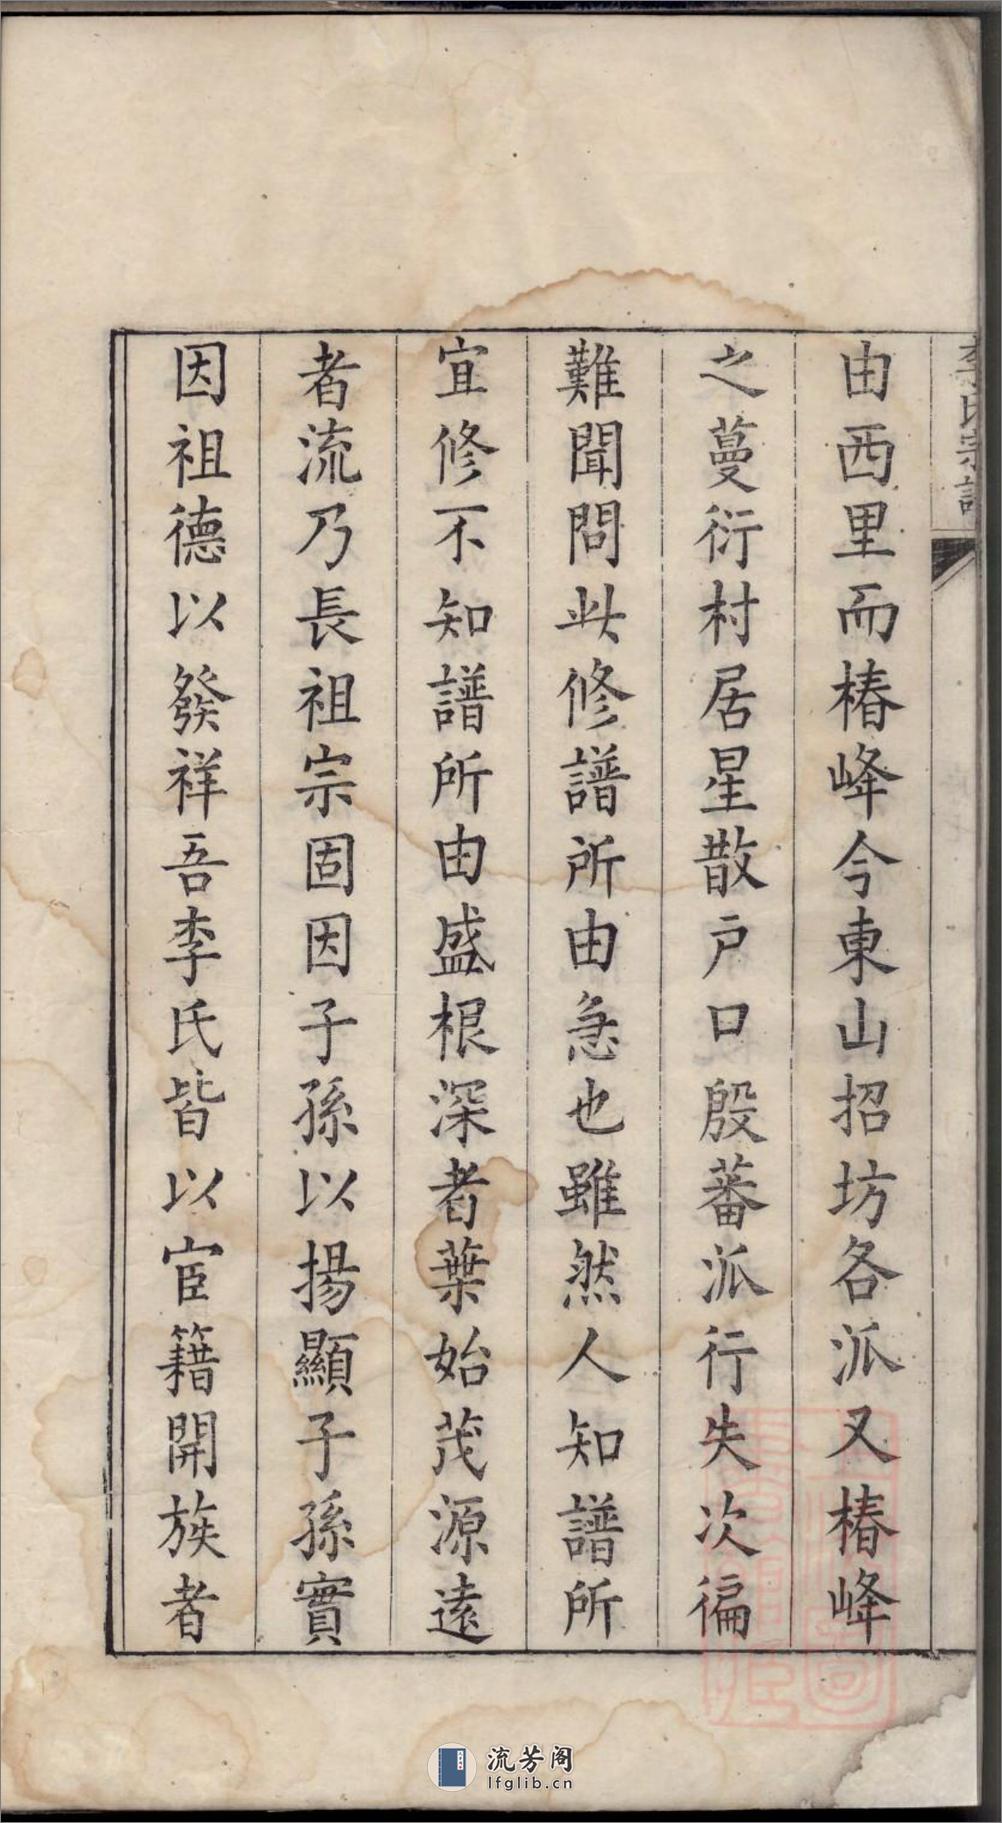 李氏宗譜
由西里而椿峰今東山招坊各派又椿峰
之蔓衍村居星散戶口殷蕃派行失次徧
難聞問此修譜所由急也雖然人知譜所
宜修不知譜所由盛根深者葉始茂源遠
者流乃長祖宗固因子孫以揚顯子孫實
因祖德以發祥吾李氏皆以宦籍開族者
流芳阁
lfglib.cn